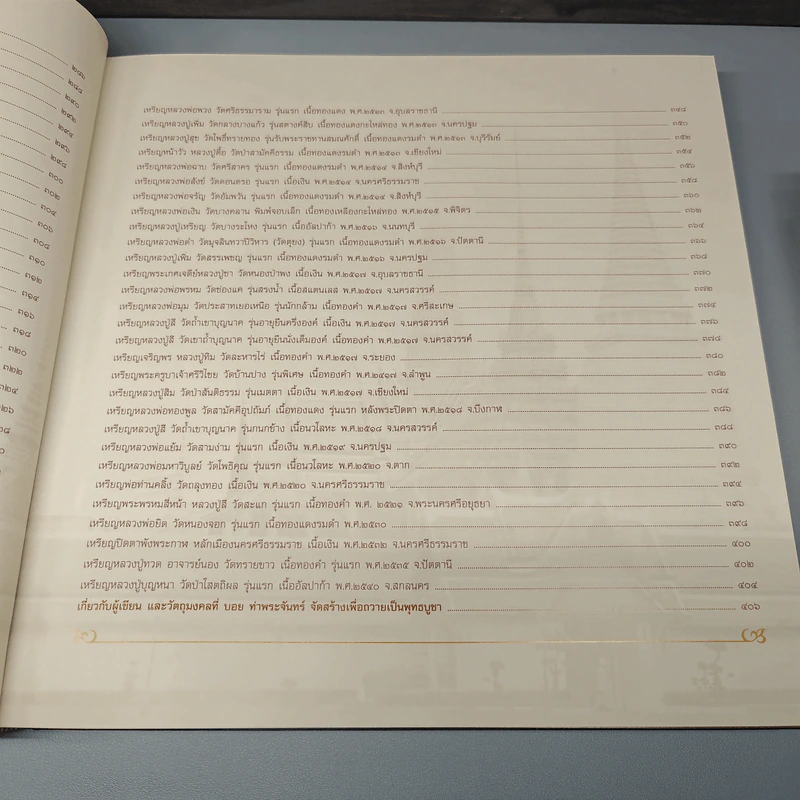 ๒๘๖
๒๘๘
๒๙๐
๒๙๒
๒๙๔
๒๙๖
๒๙๘
๓๐๐
๓๐๒
๓๐๔
๓๐๖
๓๐๘
๓๑๐
๓๑๒
๓๑๔
๓๑๖
๓๑๘
๓๒๐
๓๒๒
๓๒๔
เหรียญหลวงพ่อพวง วัดศรีธรรมาราม รุ่นแรก เนื้อทองแดง พ.ศ.๒๕๑๓ จ.อุบลราชธานี ๓๔๘
เหรียญหลวงปู่เพิ่ม วัดกลางบางแก้ว รุ่นสตางค์สิบ เนื้อทองแดงกะไหล่ทอง พ.ศ.๒๕๑๓ จ.นครปฐม ๓๕๐
เหรียญหลวงปู่สุข วัดโพธิ์ทรายทอง รุ่นรับพระราชทานสมณศักดิ์ เนื้อทองแดงรมดำ พ.ศ.๒๕๑๓ จ.บุรีรัมย์ ๓๕๒
เหรียญหน้าวัว หลวงปู่ตื้อ วัดป่าสามัคคีธรรม เนื้อทองแดงรมดำ พ.ศ.๒๕๑๓ จ.เชียงใหม่ ๓๕๔
เหรียญหลวงพ่อฉาบ วัดศรีสาคร รุ่นแรก เนื้อทองแดงรมดำ พ.ศ.๒๕๑๔ จ.สิงห์บุรี ๓๕๖
เหรียญหลวงพ่อสังข์ วัดดอนตรอ รุ่นแรก เนื้อเงิน พ.ศ.๒๕๑๔ จ.นครศรีธรรมราช ๓๕๘
เหรียญหลวงพ่อจรัญ วัดอัมพวัน รุ่นแรก เนื้อทองแดงรมดำ พ.ศ.๒๕๑๔ จ.สิงห์บุรี ๓๖๐
เหรียญหลวงพ่อเงิน วัดบางคลาน พิมพ์จอบเล็ก เนื้อทองเหลืองกะไหล่ทอง พ.ศ.๒๕๑๕ จ.พิจิตร ๓๖๒
เหรียญหลวงปู่เหรียญ วัดบางระโหง รุ่นแรก เนื้ออัลปาก้า พ.ศ.๒๕๑๖ จ.นนทบุรี ๓๖๔
เหรียญหลวงพ่อดำ วัดมุจลินทวาปีวิหาร (วัดตุยง) รุ่นแรก เนื้อทองแดงรมดำ พ.ศ.๒๕๑๖ จ.ปัตตานี ๓๖๖
เหรียญหลวงปู่เพิ่ม วัดสรรเพชญ รุ่นแรก เนื้อทองแดงรมดำ พ.ศ.๒๕๑๖ จ.นครปฐม ๓๖๘
เหรียญพระเกศเจดีย์หลวงปู่ชา วัดหนองป่าพง เนื้อเงิน พ.ศ.๒๕๑๗ จ.อุบลราชธานี ๓๗๐
เหรียญหลวงพ่อพรหม วัดช่องแค รุ่นสรงน้ำ เนื้อสแตนเลส พ.ศ.๒๕๑๗ จ.นครสวรรค์ ๓๗๒
เหรียญหลวงพ่อมุม วัดประสาทเยอเหนือ รุ่นนักกล้าม เนื้อทองคำ พ.ศ.๒๕๑๗ จ.ศรีสะเกษ ๓๗๔
เหรียญหลวงปู่สี วัดถ้ำเขาบุญนาค รุ่นอายุยืนครึ่งองค์ เนื้อเงิน พ.ศ.๒๕๑๗ จ.นครสวรรค์ ๓๗๖
เหรียญหลวงปู่สี วัดเขาถ้ำบุญนาค รุ่นอายุยืนนั่งเต็มองค์ เนื้อทองคำ พ.ศ.๒๕๑๗ จ.นครสวรรค์ ๓๗๘
เหรียญเจริญพร หลวงปู่ทิม วัดละหารไร่ เนื้อทองคำ พ.ศ.๒๕๑๗ จ.ระยอง ๓๘๐
เหรียญพระครูบาเจ้าศรีวิไชย วัดบ้านปาง รุ่นพิเศษ เนื้อทองคำ พ.ศ.๒๔๑๗ จ.ลำพูน ๓๘๒
เหรียญหลวงปู่สิม วัดป่าสันติธรรม รุ่นเมตตา เนื้อเงิน พ.ศ.๒๕๑๗ จ.เชียงใหม่ ๓๘๔
เหรียญหลวงพ่อทองพูล วัดสามัคคีอุปถัมภ์ เนื้อทองแดง รุ่นแรก หลังพระปิดตา พ.ศ.๒๕๑๘ จ.บึงกาฬ ๓๘๖
เหรียญหลวงปู่สี วัดถ้ำเขาบุญนาค รุ่นกนกข้าง เนื้อนวโลหะ พ.ศ.๒๕๑๘ จ.นครสวรรค์ ๓๘๘
เหรียญหลวงพ่อแย้ม วัดสามง่าม รุ่นแรก เนื้อเงิน พ.ศ.๒๕๑๙ จ.นครปฐม ๓๙๐
เหรียญหลวงพ่อมหาวิบูลย์ วัดโพธิคุณ รุ่นแรก เนื้อนวโลหะ พ.ศ.๒๕๒๐ จ.ตาก ๓๙๒
เหรียญพ่อท่านคลิ้ง วัดถลุงทอง เนื้อเงิน พ.ศ.๒๕๒๐ จ.นครศรีธรรมราช ๓๙๔
เหรียญพระพรหมสี่หน้า หลวงปู่สี วัดสะแก รุ่นแรก เนื้อทองคำ พ.ศ. ๒๕๒๑ จ.พระนครศรีอยุธยา ๓๙๖
เหรียญหลวงพ่อยิด วัดหนองจอก รุ่นแรก เนื้อทองแดงรมดำ พ.ศ.๒๕๓๐ ๓๙๘
เหรียญปิดตาพังพระกาฬ หลักเมืองนครศรีธรรมราช เนื้อเงิน พ.ศ.๒๕๓๒ จ.นครศรีธรรมราช ๔๐๐
เหรียญหลวงปู่ทวด อาจารย์นอง วัดทรายขาว เนื้อทองคำ พ.ศ.๒๕๓๕ จ.ปัตตานี ๔๐๒
เหรียญหลวงปู่บุญหนา วัดป่าโสตถิผล รุ่นแรก เนื้ออัลปาก้า พ.ศ.๒๕๔๐ จ.สกลนคร ๔๐๔
เกี่ยวกับผู้เขียน และวัตถุมงคลที่ บอย ท่าพระจันทร์ จัดสร้างเพื่อถวายเป็นพุทธบูชา ๔๐๖